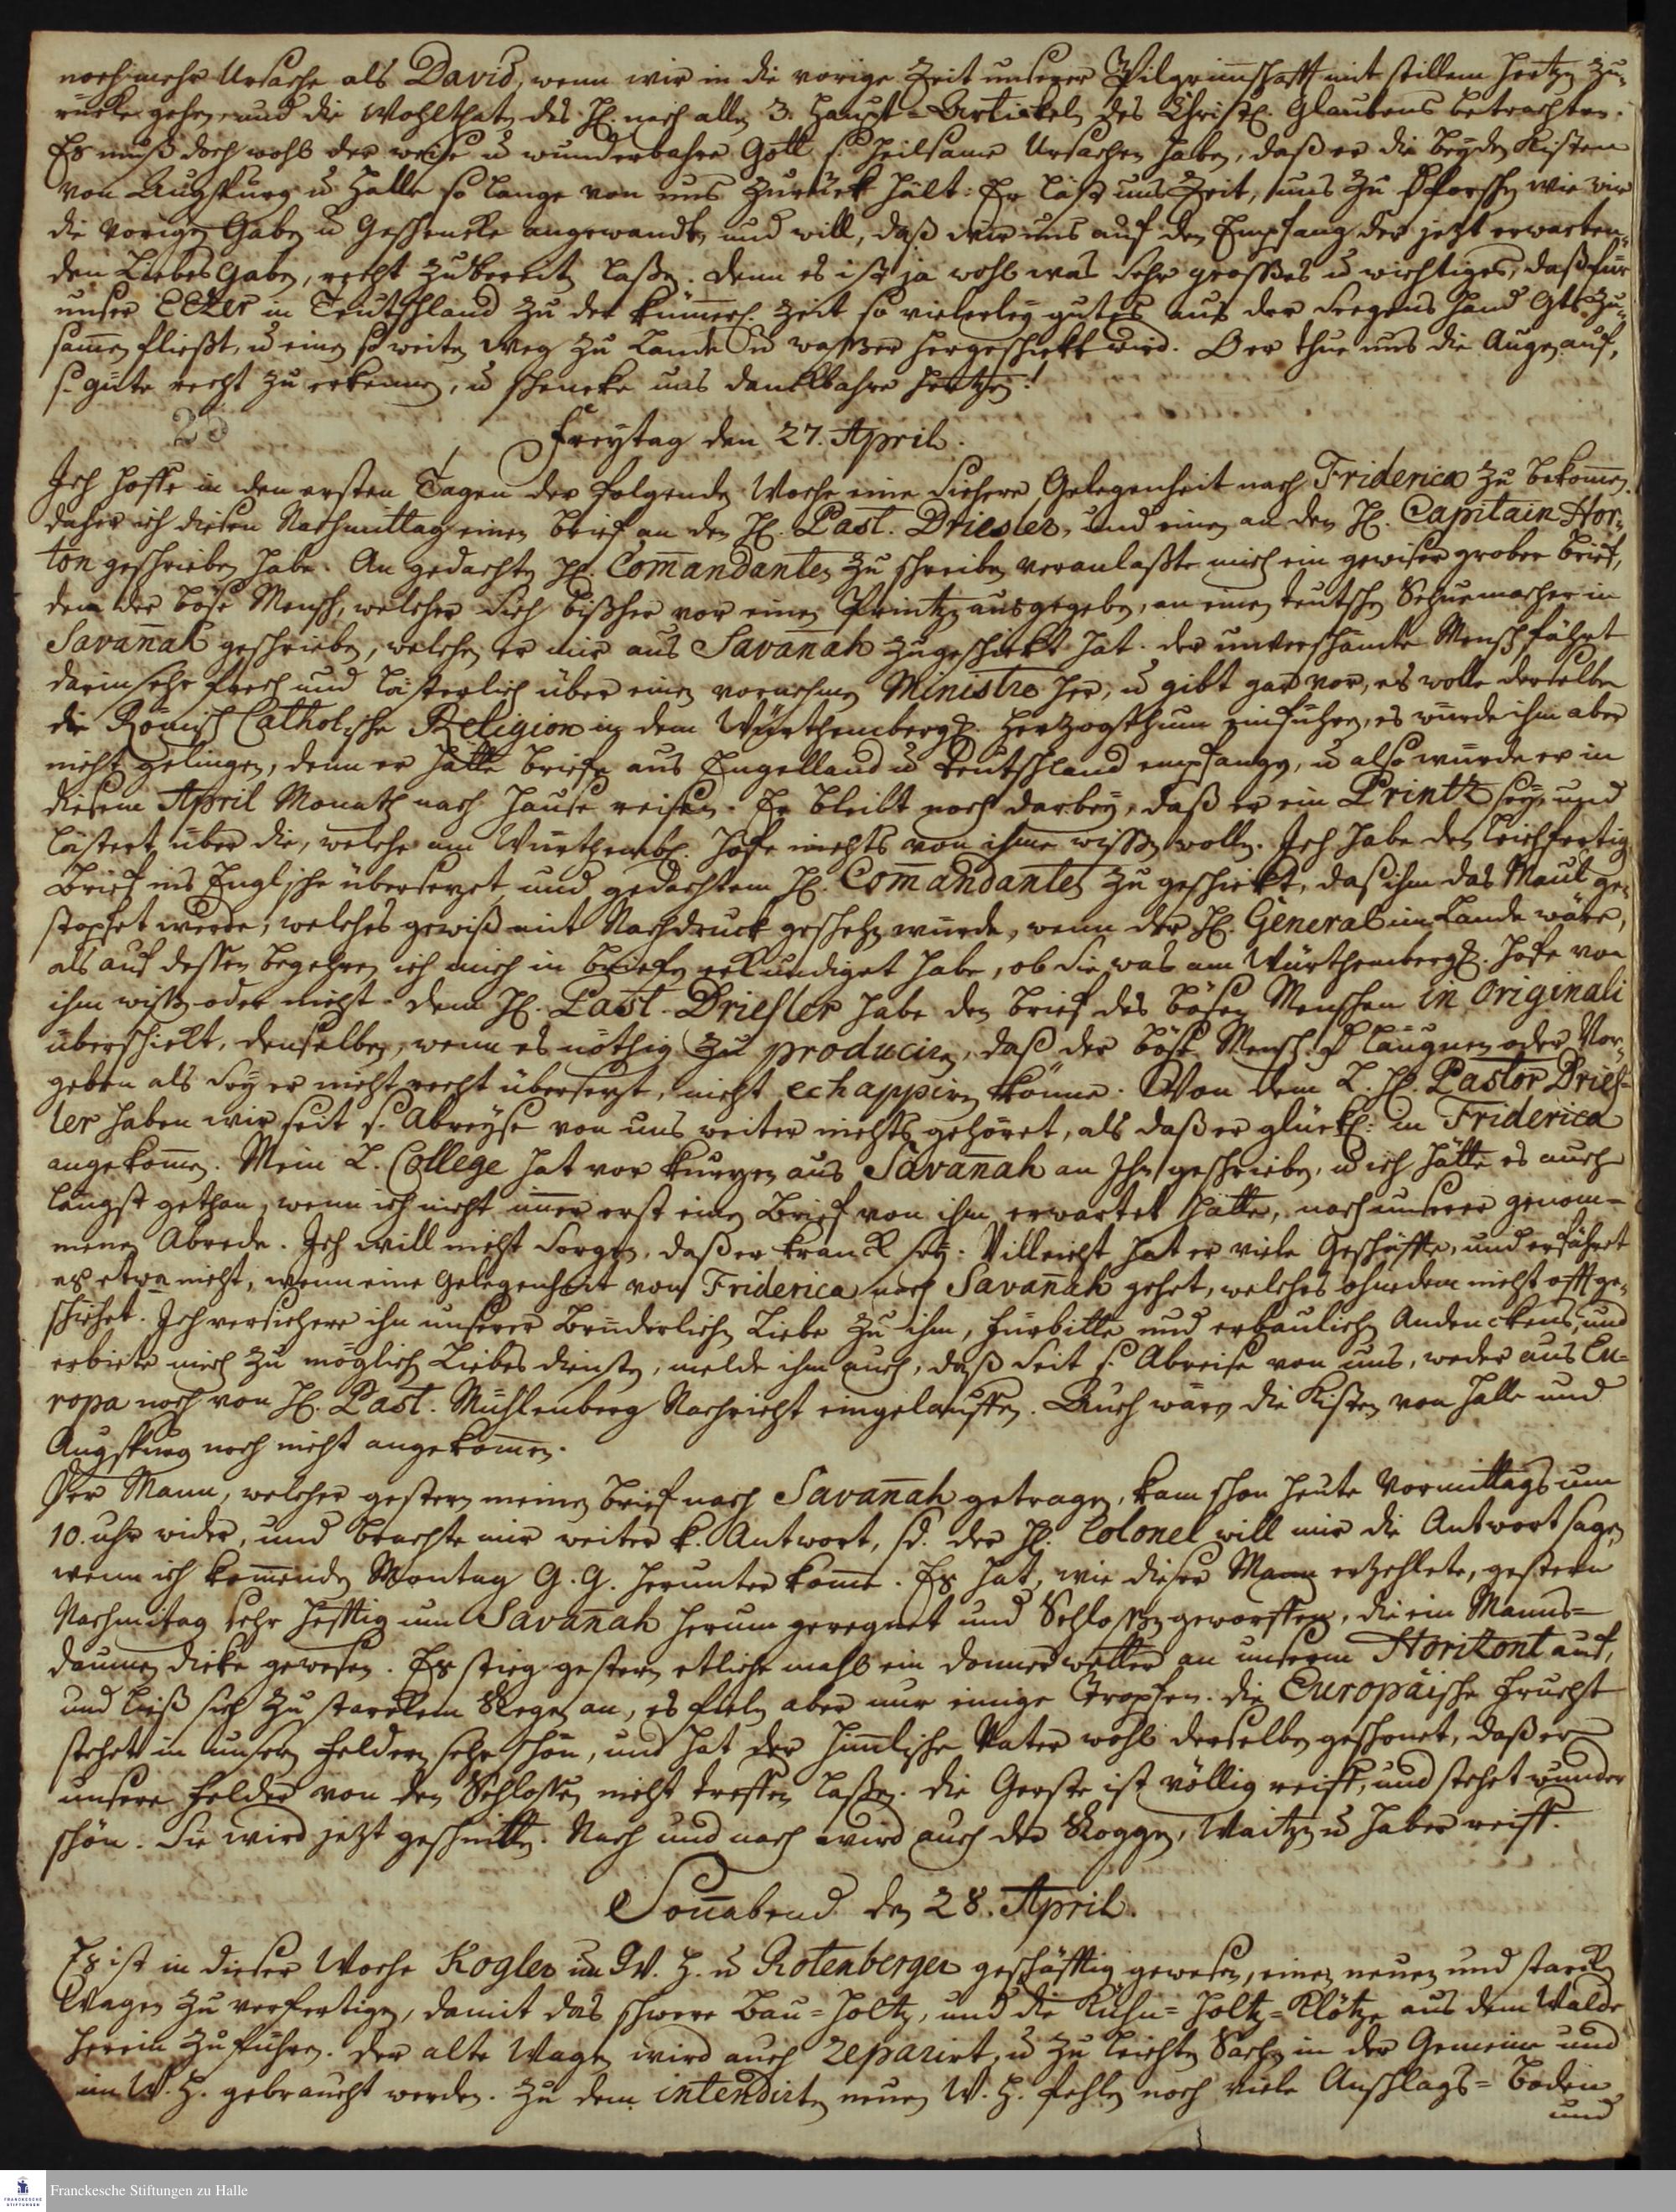 noch mehr Ursache als David, wenn wir in die vorige Zeit unserer Pilgrimschafft mit stillem Hertzen zu-
rücke gehen, und die Wohlthaten des H. nach allen 3. Haupt-Artickeln des Christl. Glaubens betrachten.
Es muß doch wohl der weise u wunderbahre Gott s. heilsame Ursachen haben, daß er die beyden Kisten
von Augspurg u Halle so lange von uns zurück hält: Er läst uns Zeit, uns zu erforschen wie wir
die vorigen Gaben u Geschencke angewandt, und will, daß wir uns auf den Empfang der jetzt erwarten-
den Liebes Gaben, recht zubereiten laßen. Denn es ist ja wohl was sehr großes u wichtiges, daß für
unser EbEzer in Teutschland zu der kümerl. Zeit so vielerley gutes aus der Seegens Hand Gts. zu-
samen fließt, u einen so weiten Weg zu Lande u waßer hergeschickt wird. Der thue uns die Augen auf,
s. güte recht zu erkennen, u schencke uns danckbahre Hertzen!
25
Freytag den 27. April.
Ich hoffe in den ersten Tagen der folgenden Woche eine sichere Gelegenheit nach Friderica zu bekomen.
daher ich diesen Nachmittag einen brief an den H. Past. Driesler, und einen an den H. Capitain Hor-
ton geschrieben habe. An gedachten H. Comandanten zu schreiben veranlaßte mich ein gewißer grober brief,
den der böse Mensch, welcher sich bißher vor einen Printzen ausgegeben, an einen teutschen Schumacher in
Savanah geschrieben, welchen er mir aus Savanah zugeschickt hat. der unverschämte Mensch fährt
darin sehr frech und lästerlich über einen vornehmen Ministre her, u gibt gar vor, es wolle derselbe
die Römisch Catholische Religion in dem Würthembergl. Hertzogthum einführen, es würde ihm aber
nicht gelingen, denn er hätte briefe aus Engelland u Teutschland empfangen, u also würde er in
diesem April Monath nach Hause reisen. Er bleibt noch darbey, daß er ein Printz sey, und
lästert über die, welche am Würthemb. Hofe nichts von ihme wißen wollen. Ich habe den leichfertigen
brief ins Englische übersetzet, und gedachtem H. Comandanten zu geschickt, daß ihm das Maul ge-
stopfet werde, welches gewiß mit Nachdruck geschehen würde, wenn der H. General im Lande wäre,
als auf deßen begehren ich mich in briefen erkundiget habe, ob sie was am Würthembergl. Hofe von
ihm wißen oder nicht. dem H. Past. Driesler habe den brief des bösen Menschen in Originali
überschickt, denselben, wenn es nöthig zu produciren, daß der böse Mensch läugnen oder Vor-
geben als sey er nicht recht übersetzt, nicht echappiren könne. Von dem L. H. Pastor Dries-
ler haben wir seit s. Abreyse von uns weiter nichts gehöret, als daß er glückl. in Friderica
angekomen. Mein L. College hat vor kurzen aus Savanah an Ihn geschrieben, u ich hätte es auch
längst gethan, wenn ich nicht imer erst einen Brief von ihm erwartet hätte, nach unserer genom-
menen Abrede. Ich will nicht sorgen, daß er kranck sey: Villeicht hat er viele Geschäffte, und erfähret
es etwa nicht, wenn eine Gelegenheit von Friderica nach Savanah gehet, welches ohnedem nicht offt ge-
schiehet. Ich versichere ihn unserer brüderlichen Liebe zu ihm, Fürbitte und erbaulichen Andenckens, und
erbiete mich zu möglichen Liebes diensten, melde ihm auch, daß seit s. Abreise von uns, weder aus Eu-
ropa noch von H. Past. Mühlenberg Nachricht eingelauffen. Auch wären die Kisten von Halle und
Augspurg noch nicht angekomen.
Der Mann, welcher gestern meinen brief nach Savanah getragen, kam schon heute Vormittags um
10. uhr wider, und brachte mir weiter k. Antwort, sd. der H. Colonel will mir die Antwort sagen,
wenn ich komenden Montag G. G. herunter kome. Es hat, wie dieser Mann erzehlete, gestern
Nachmitag sehr hefftig um Savanah herum geregnet und Schloßen geworffen, die ein Manns-
daumen dicke gewesen. Es stieg gestern etliche mahl ein donnerwetter an unserm Horizont auf,
und ließ sich zu starckem Regen an, es fielen aber nur einige Tropfen. die Europäische Frucht
stehet in unsern Feldern sehr schön, und hat der himlische Vater wohl derselben geschonet, daß er
unsere Felder von den Schloßen nicht treffen laßen. die Gerste ist völlig reiff, und stehet wunder
schön. Sie wird jetzt geschnitten. Nach und nach wird auch der Roggen, Waitzen u Haber reiff.
Sonabend den 28. April.
Es ist in dieser Woche Kogler im W. H. u Rotenberger geschäfftig gewesen, einen neuen und starcken
Wagen zu verfertigen, damit das schwere Bau-Holtz, und die Kühn-Holtz-Klötze aus dem Walde
herein zuführen. Der alte Wagen wird auch reparirt, u zu leichten Sachen in der Gemeine und
im W. H. gebraucht werden. Zu dem intendirten neuen W. H. fehlen noch viele Anschlags-Boden
und
Franckesche Stiftungen zu Halle